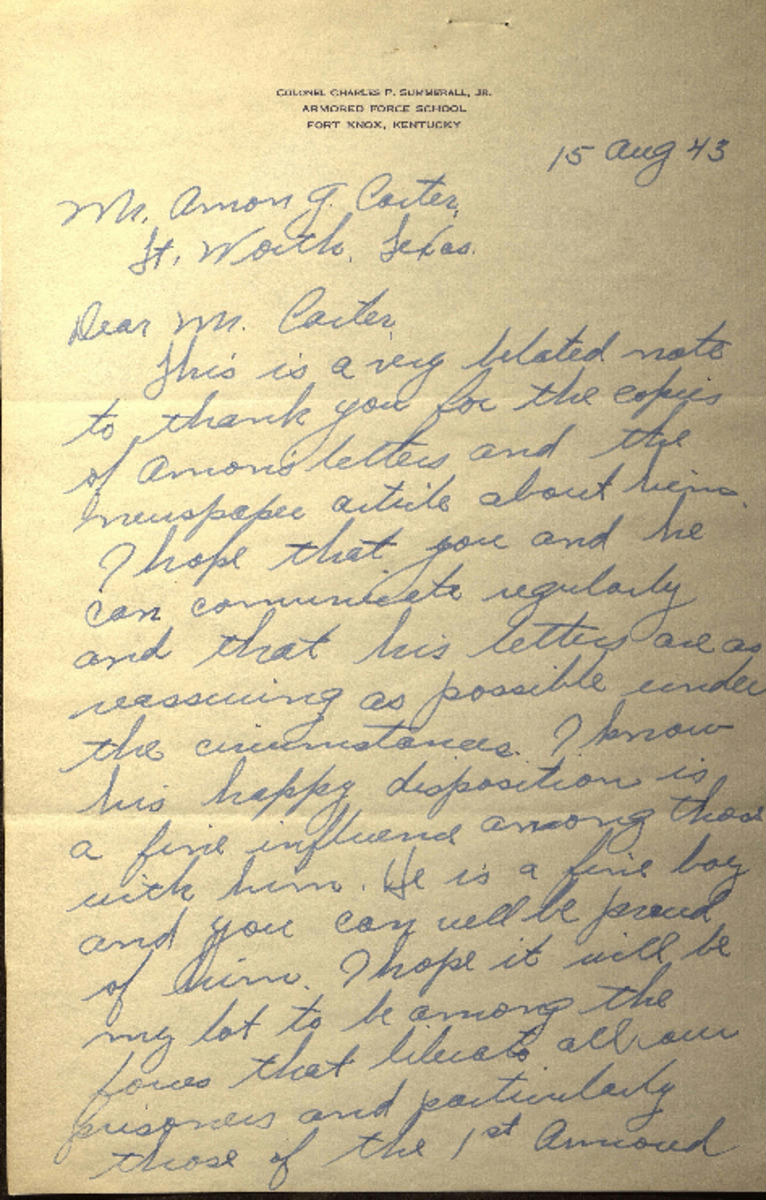 COLONEL CHARLES P. SUMMERALL, JR.
ARMORED FORCE SCHOOL
FORT KNOX, KENTUCKY
15 Aug 43
Mr. Amon G. Carter,
Ft. Worth, Texas.
Dear Mr. Carter,
This is a very belated note
to thank you for the copies
of Amon's letters and the
newspaper article about him.
I hope that you and he
can comunicate regularly
and that his letters are as
reassuring as possible under
the circumstances. I know
his happy disposition is
a fine influence among those
with him. He is a fine boy
and you can well be proud
of him. I hope it will be
my lot to be among the
forces that liberate all our
prisoners and particularly
those of the 1st Armored